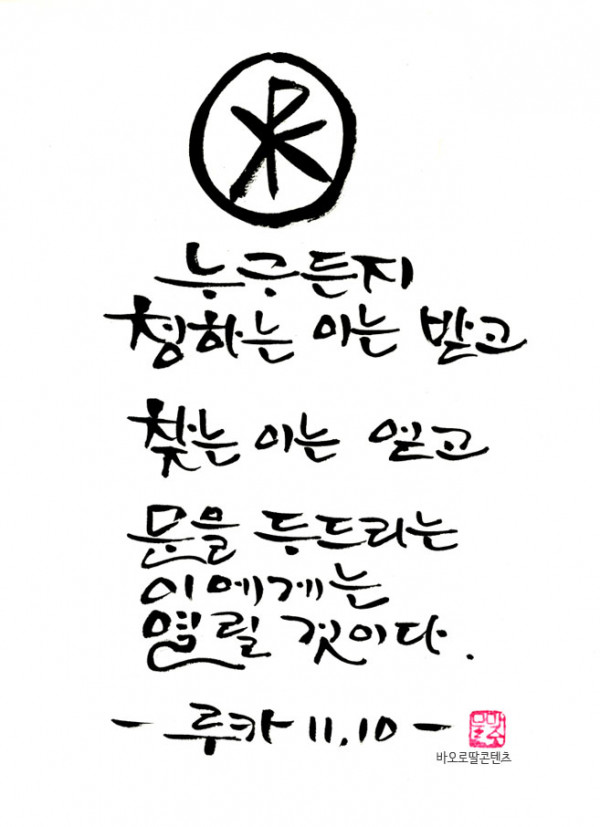 누구든지
청하는 이는 받고
찾는 이는 얻고
문을 두드리는
이에게는
열릴 것이다.
- 루카 11,10 -
바오로딸콘텐츠